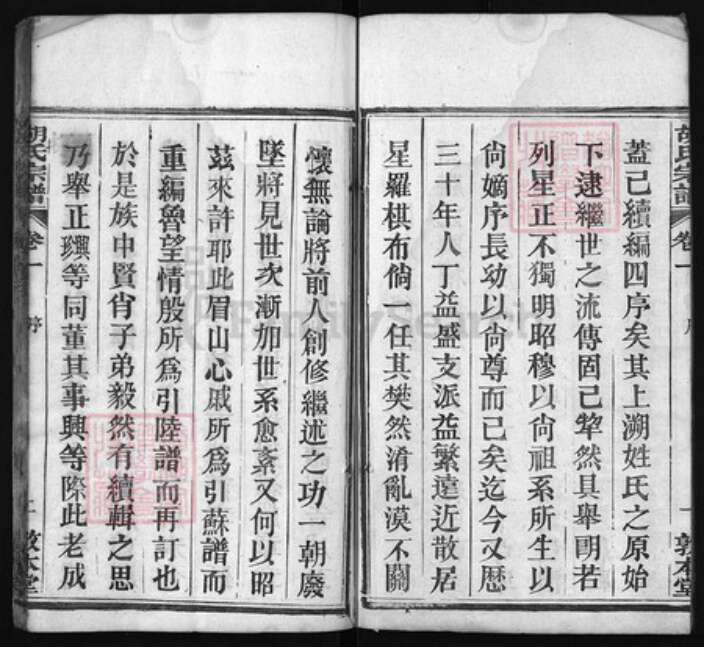 胡氏宗譜
卷一
序
一
敦本堂
蓋已續編四序矣其上溯姓氏之原始
下逮繼世之流傳固已犖然具舉明若
列星正不獨明昭穆以尙祖系所生以
尙嫡序長幼以尙尊而已矣迄今又歷
三十年人丁益盛支派益繁遠近散居
星羅棋布倘一任其樊然淆亂漠不關
懷無論將前人創修繼述之功一朝廢
墜將見世次漸加世系愈紊又何以昭
茲來許耶此眉山心戚所爲引蘇譜而
重編魯望情殷所爲引陸譜而再訂也
於是族中賢肖子弟毅然有續輯之思
乃舉正璵等同董其事興等際此老成
胡氏宗譜
卷一
序
敦本堂
FamilySearch